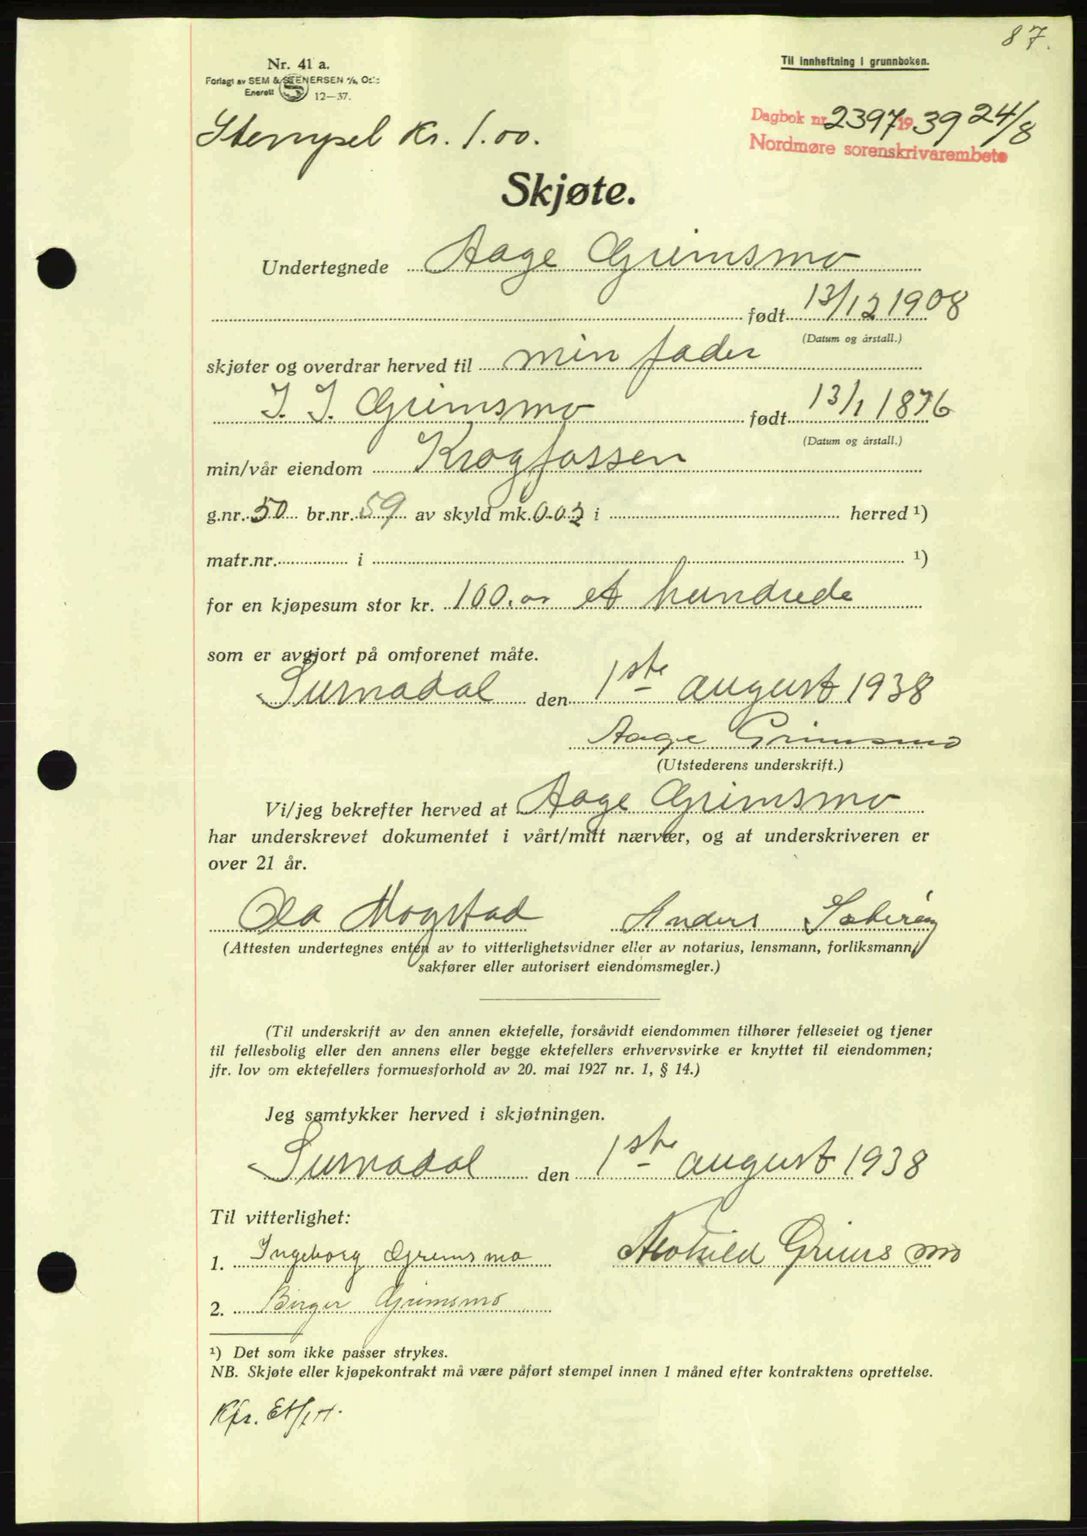 87.
Nr. 41 a.
Forlagt av SEM & STENERSEN A/S, Oslo
Enerett 12—37.
Til innheftning i grunnboken.
Stempel Kr. 1.00.
Dagbok nr. 2397 1939 24/8
Nordmøre sorenskrivarembete
Skjøte.
Undertegnede Aage Grimsmo
født 13/12 1908
(Datum og årstall.)
skjøter og overdrar herved til min fader
I. I. Grimsmo født 13/1 1876
(Datum og årstall.)
min/vår eiendom Krogfossen
g.nr. 50 br.nr. 59 av skyld mk. 0.02 i herred ¹)
matr.nr. i ¹)
for en kjøpesum stor kr. 100.00 et hundrede
som er avgjort på omforenet måte.
Surnadal den 1ste august 1938
Aage Grimsmo
(Utstederens underskrift.)
Vi/jeg bekrefter herved at Aage Grimsmo
har underskrevet dokumentet i vårt/mitt nærvær, og at underskriveren er
over 21 år.
Ola Mogstad Anders Sæterøy
(Attesten undertegnes enten av to vitterlighetsvidner eller av notarius, lensmann, forliksmann,
sakfører eller autorisert eiendomsmegler.)
(Til underskrift av den annen ektefelle, forsåvidt eiendommen tilhører felleseiet og tjener
til fellesbolig eller den annens eller begge ektefellers erhvervsvirke er knyttet til eiendommen;
jfr. lov om ektefellers formuesforhold av 20. mai 1927 nr. 1, § 14.)
Jeg samtykker herved i skjøtningen.
Surnadal den 1ste august 1938
Til vitterlighet:
1. Ingeborg Grimsmo Grimsmo
2. Birger Grimsmo
¹) Det som ikke passer strykes.
NB. Skjøte eller kjøpekontrakt må være påført stempel innen 1 måned efter kontraktens oprettelse.
Kfr.